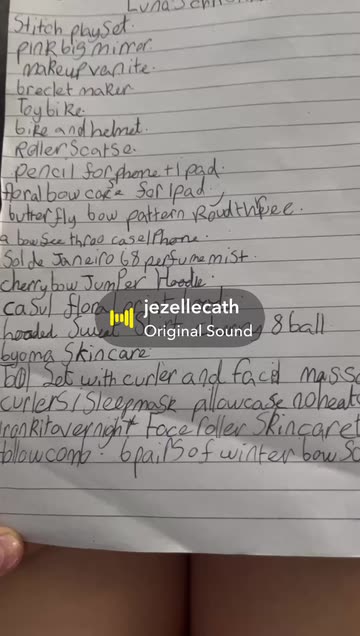 Luna's
Stitch play set.
pink big mirror
makeup vanite.
breclet maker
Toy bike.
bike and helmet.
Roller Scatse.
pencil for phone + I pad.
floral bow case for I pad.
butterfly bow pattern
a bow See throo case I Phone.
Sol de Janeiro 68 perfume mist.
cherry bow Jumper Hoodie.
casul flora
jezellecath
hooded 8 ball
Original Sound
byoma Skincare
Set with curler and facil
curlers / Sleep mask pillowcase no heat
overnight Face roller Skincare
blow comb. 6 pairs of winter bow